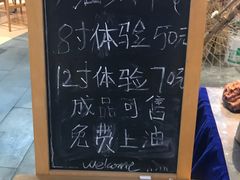 8寸体验50元
12寸体验70元
成品可售
免费上油
welcome